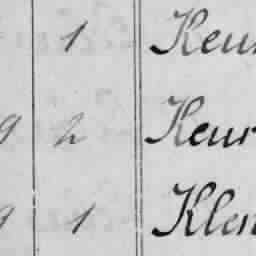 1 Keu
9 2 Keur
9 1 Klen